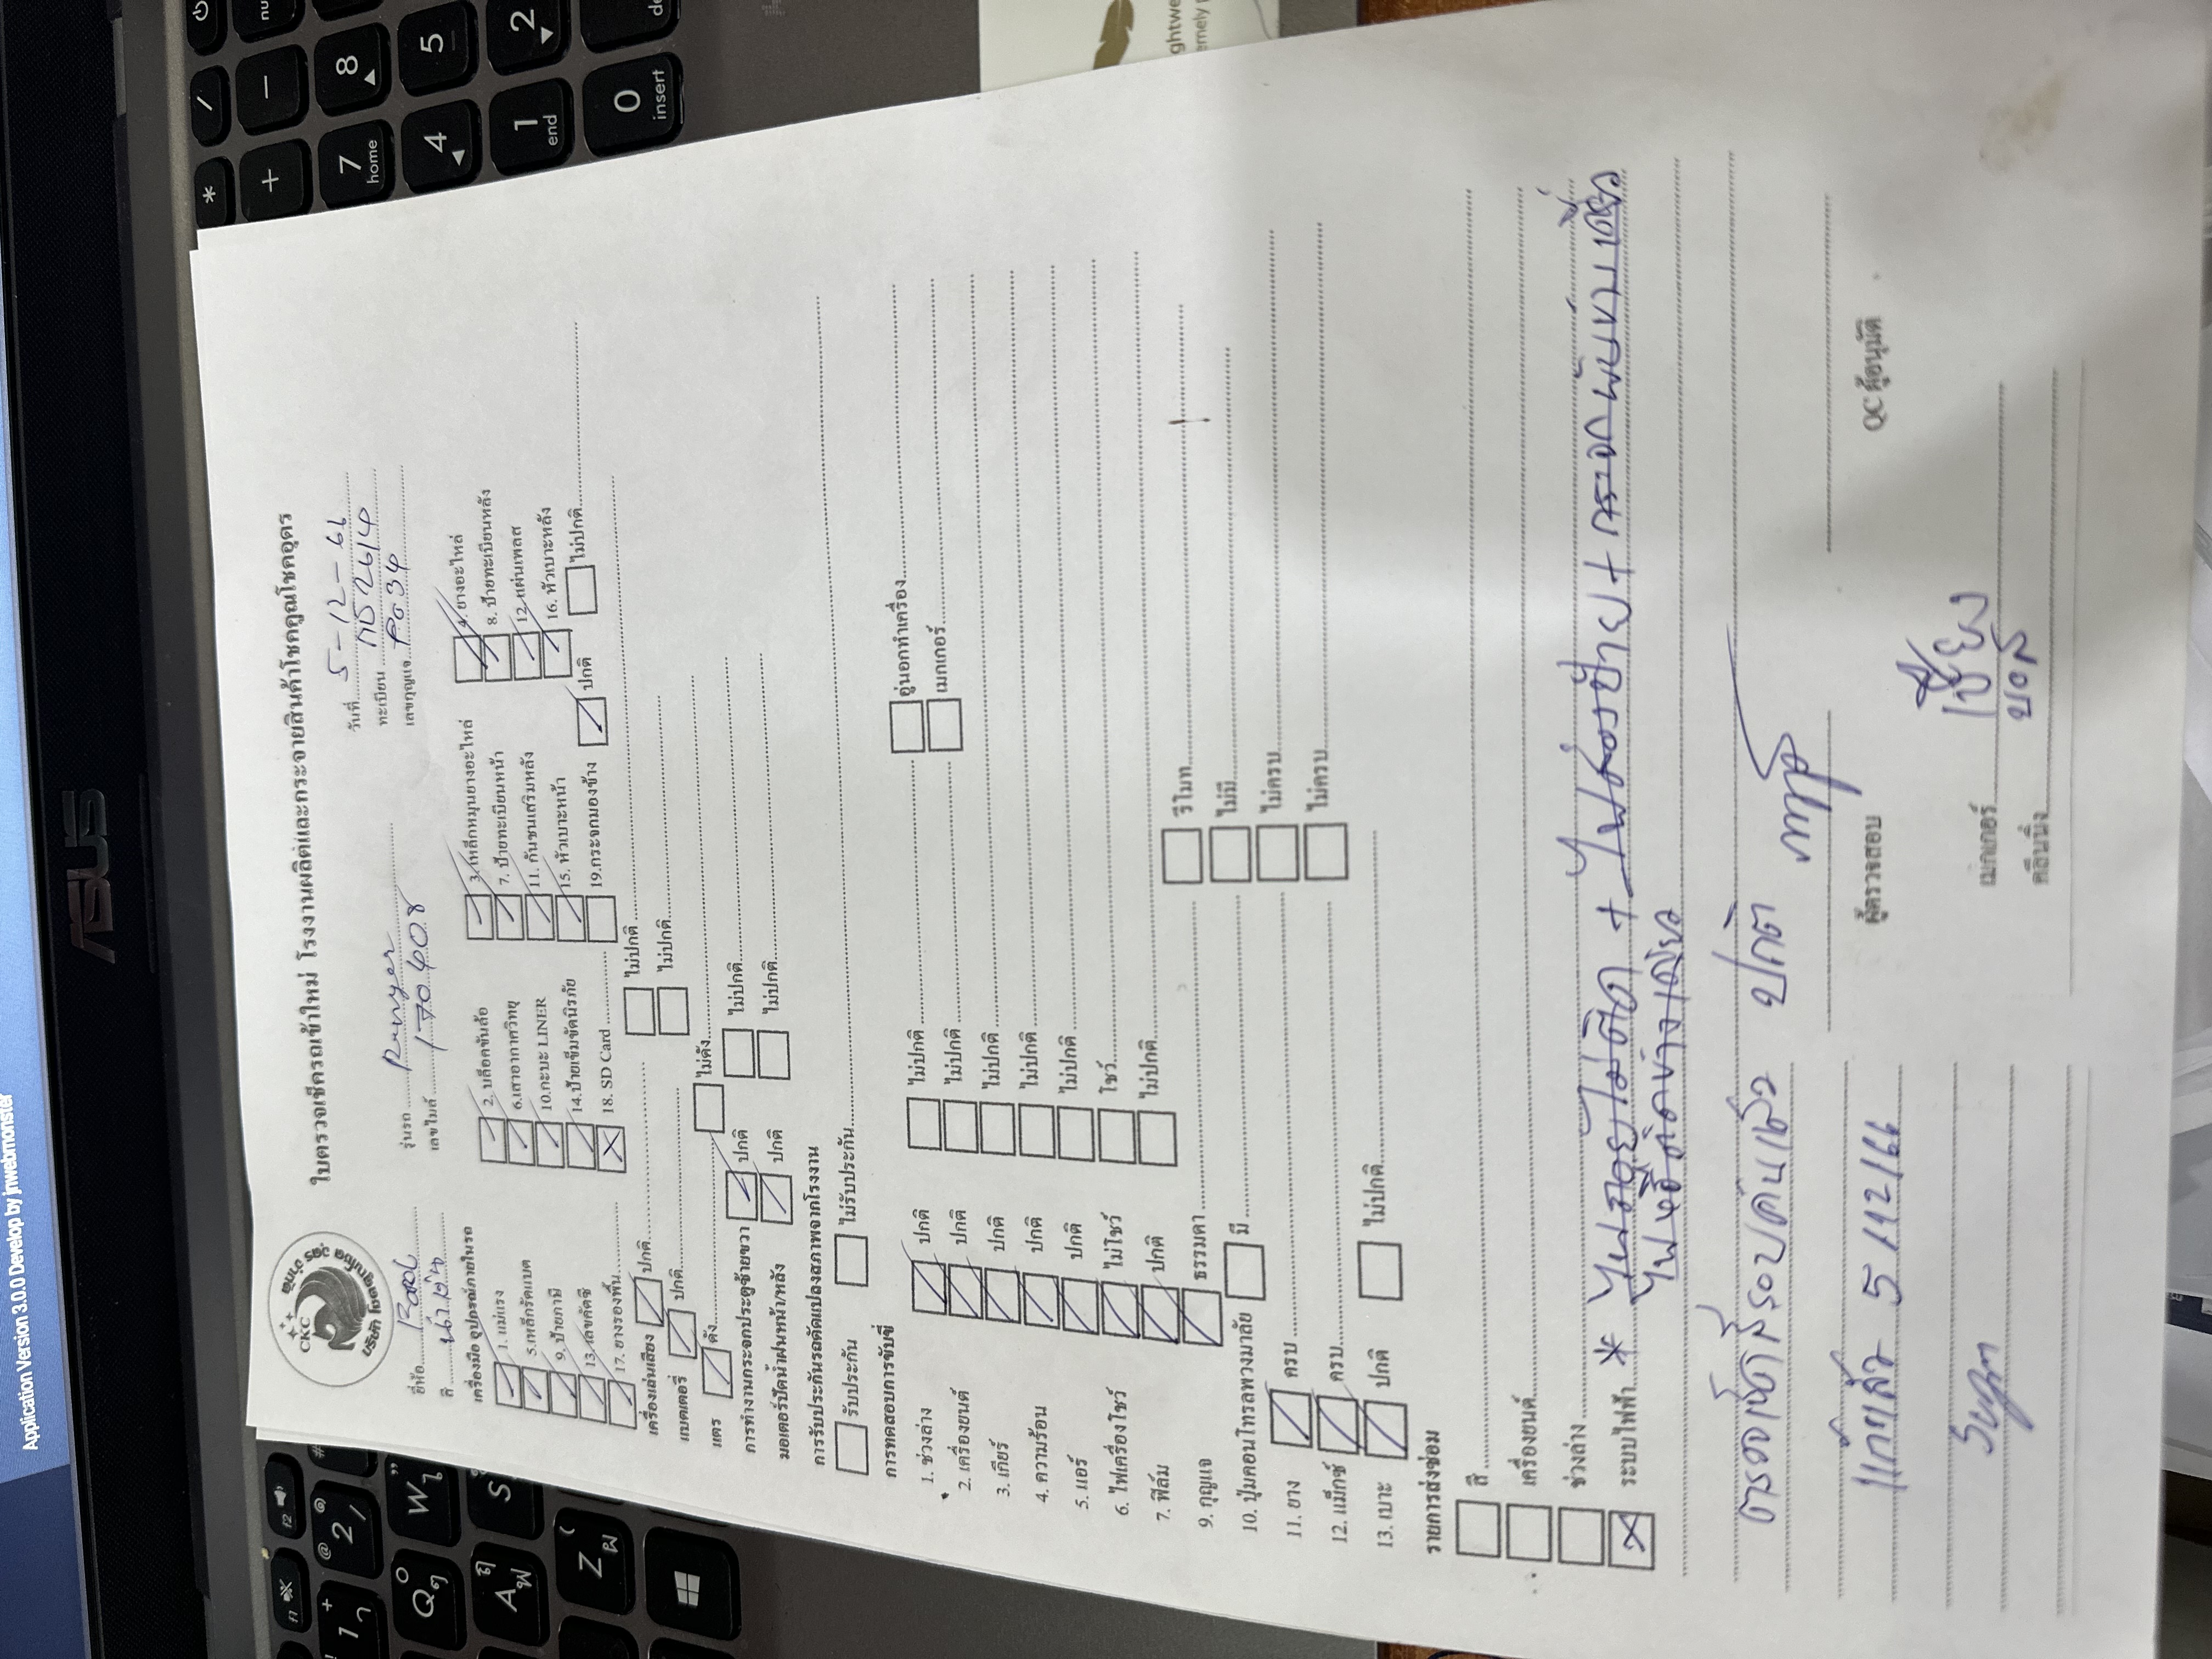 Application Version 3.0.0 Develop by jnwebmonster
ASUS
CKC
ใบตรวจเช็ครถเข้าใหม่ โรงงานผลิตและกระจายสินค้าโชคคูณโชคอุดร
วันที่ 5-12-66
ยี่ห้อ Ford รุ่นรถ Ranger ทะเบียน
สี น้ำเงิน เลขไมล์ 170,408 เลขกุญแจ P034
เครื่องมือ อุปกรณ์ภายในรถ
1. แม่แรง 2. บล็อคขันล้อ 3. เหล็กหมุนยางอะไหล่ 4. ยางอะไหล่
5. เหล็กรัดแบต 6. เสาอากาศวิทยุ 7. ป้ายทะเบียนหน้า 8. ป้ายทะเบียนหลัง
9. ป้ายภาษี 10. กะบะ LINER 11. กันชนเสริมหลัง 12. แผ่นเพลส
13. เลขคัตซี 14. ป้ายเข็มขัดนิรภัย 15. หัวเบาะหน้า 16. หัวเบาะหลัง
17. ยางรองพื้น 18. SD Card 19. กระจกมองข้าง ปกติ ไม่ปกติ
เครื่องเล่นเสียง ปกติ ไม่ปกติ
แบตเตอรี่ ปกติ ไม่ปกติ
แตร ดัง ไม่ดัง
การทำงานกระจกประตูซ้ายขวา ปกติ ไม่ปกติ
มอเตอร์ปัดน้ำฝนหน้า/หลัง ปกติ ไม่ปกติ
การรับประกันรถดัดแปลงสภาพจากโรงงาน
รับประกัน ไม่รับประกัน
การทดสอบการขับขี่
1. ช่วงล่าง ปกติ ไม่ปกติ อู่นอกทำเครื่อง
2. เครื่องยนต์ ปกติ ไม่ปกติ เมกเกอร์
3. เกียร์ ปกติ ไม่ปกติ
4. ความร้อน ปกติ ไม่ปกติ
5. แอร์ ปกติ ไม่ปกติ
6. ไฟเครื่องโชว์ ไม่โชว์ โชว์
7. ฟิล์ม ปกติ ไม่ปกติ
9. กุญแจ ธรรมดา รีโมท
10. ปุ่มคอนโทรลพวงมาลัย มี ไม่มี
11. ยาง ครบ ไม่ครบ
12. แม็กซ์ ครบ ไม่ครบ
13. เบาะ ปกติ ไม่ปกติ
รายการส่งซ่อม
สี
เครื่องยนต์
ช่วงล่าง
ระบบไฟฟ้า * ไม่ติด + ไฟส่องป้าย + กระจกพับ
ไฟ ติดข้างเดียว
ตรวจเช็ค รอบคันแล้ว ปกติ
แก้แล้ว 5/12/66
ผู้ตรวจสอบ QC ผู้อนุมัติ
เมกเกอร์
คลีนนิ่ง